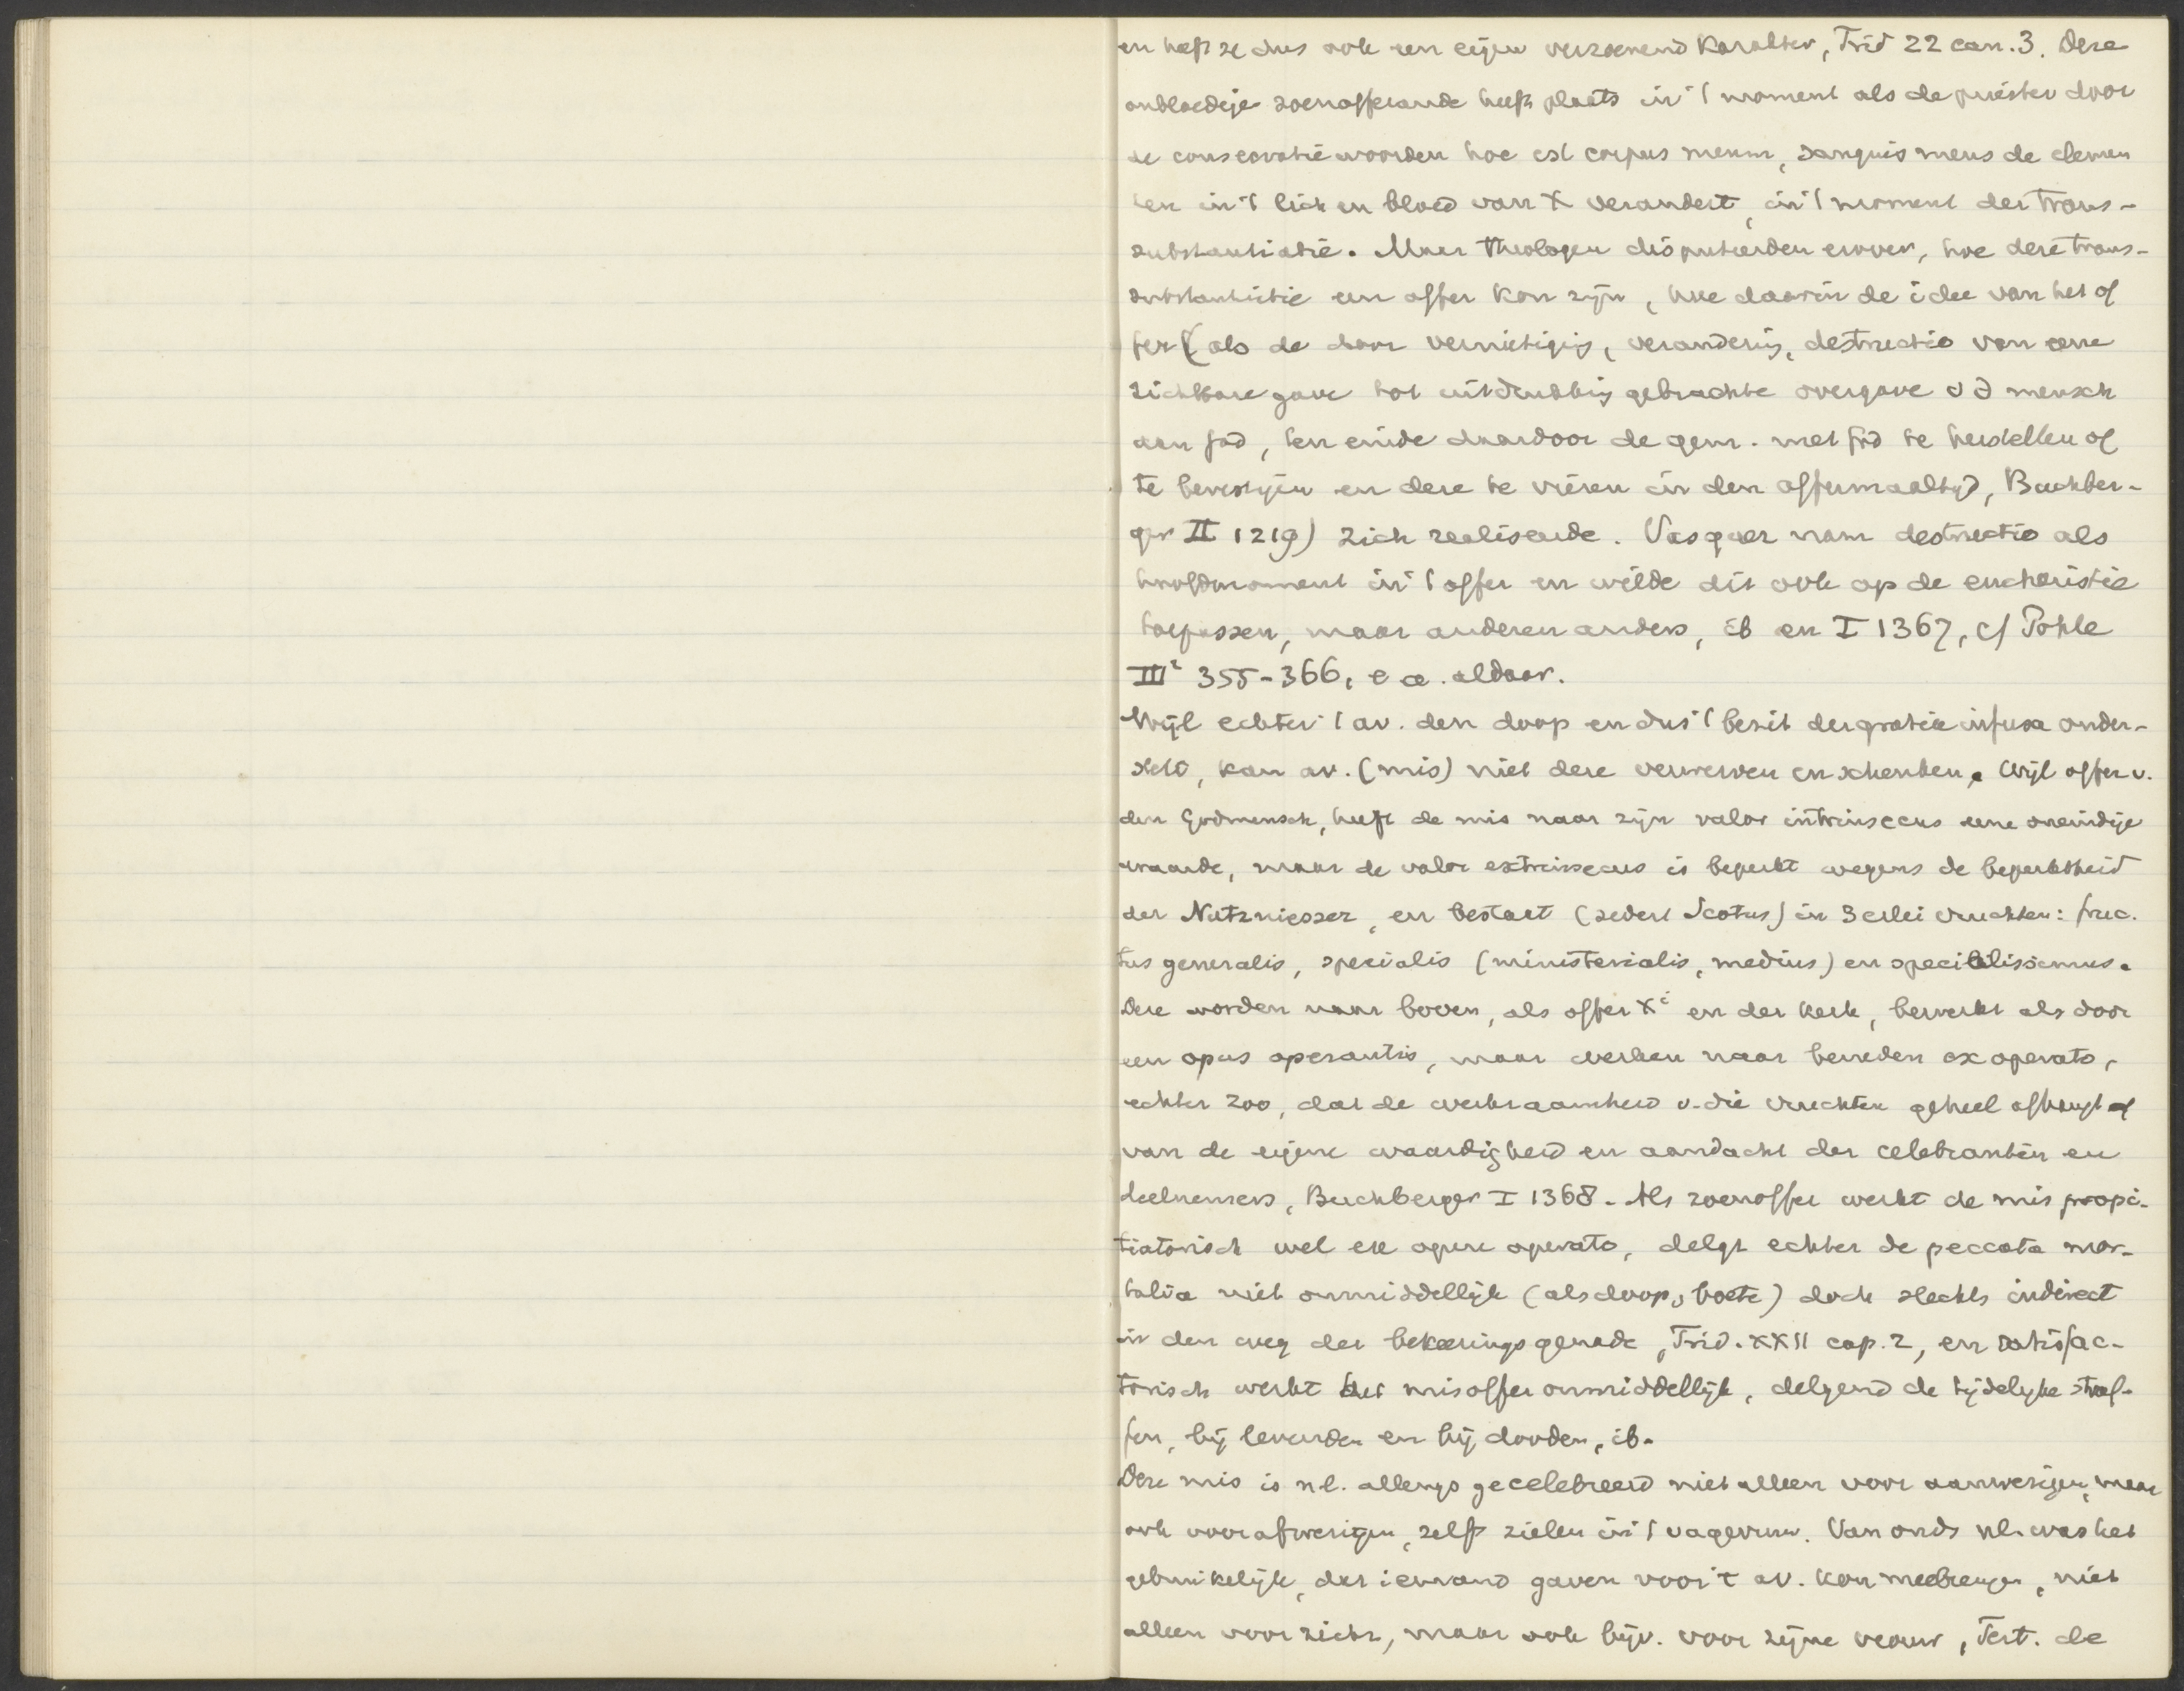 en heeft ze dus ook een eigen verzoenend karakter, Trid 22 can. 3. Deze
onbloedige zoenofferande heeft plaats in 't moment als de priester door
de consecratiewoorden hoc est corpus meum, sanguis meus de elemen
ten in 't lich en bloed van X verandert, in 't moment der trans-
substantiatie. Maar theologen disputeerden erover, hoe deze trans-
substantiatie een offer kon zijn, hoe daarin de idee van het of
fer (als de door vernietiging, verandering, destructio van eene
zichtbare gave tot uitdrukking gebrachte overgave v d mensch
aan God, ten einde daardoor de gem. met God te herstellen of
te bevestigen en deze te vieren in den offermaaltijd, Buchber-
ger II 1219) zich realiseerde. Vasquez nam destructio als
hoofdmoment in 't offer en wilde dit ook op de eucharistie
toepassen, maar anderen anders, ib en I 1367, cf Pohle
III² 355-366, e a. aldaar.
Wijl echter 't av. den doop en dus 't bezit der gratia infusa onder-
stelt, kan av. (mis) niet deze verwerven en schenken. Wijl offer v.
den Godmensch, heeft de mis naar zijn valor intrinsecus eene oneindige
waarde, maar de valor extrinsecus is beperkt wegens de beperktheid
der Nutzniesser, en bestaet (sedert Scotus) in 3erlei vruchten: fruc.
tus generalis, specialis (ministerialis, medius) en specialissimus.
Deze worden naar boven, als offer Xi en der kerk, bewerkt als door
een opus operantis, maar werken naar beneden ex operato,
echter zoo, dat de werkzaamheid v. die vruchten geheel afhangt
van de eigene waardigheid en aandacht der celebranten en
deelnemers, Buchberger I 1368. Als zoenoffer werkt de mis propi-
tiatorisch wel ex opere operato, delgt echter de peccata mor-
talia niet onmiddellijk (als doop, boete) doch slechts indirect
in den weg der bekeeringsgenade, Trid. XXII cap. 2, en satisfac-
torisch werkt het misoffer onmiddellijk, delgend de tijdelijke straf-
fen, bij levenden en bij dooden, ib.
Deze mis is nl. allengs gecelebreerd niet alleen voor aanwezigen, maar
ook voor afwezigen, zelfs zielen in 't vagevuur. Van ouds nl. was het
gebruikelijk, dat iemand gaven voor 't av. kon meebrengen, niet
alleen voor zich, maar ook bijv. voor zijne vrouw, Tert. de